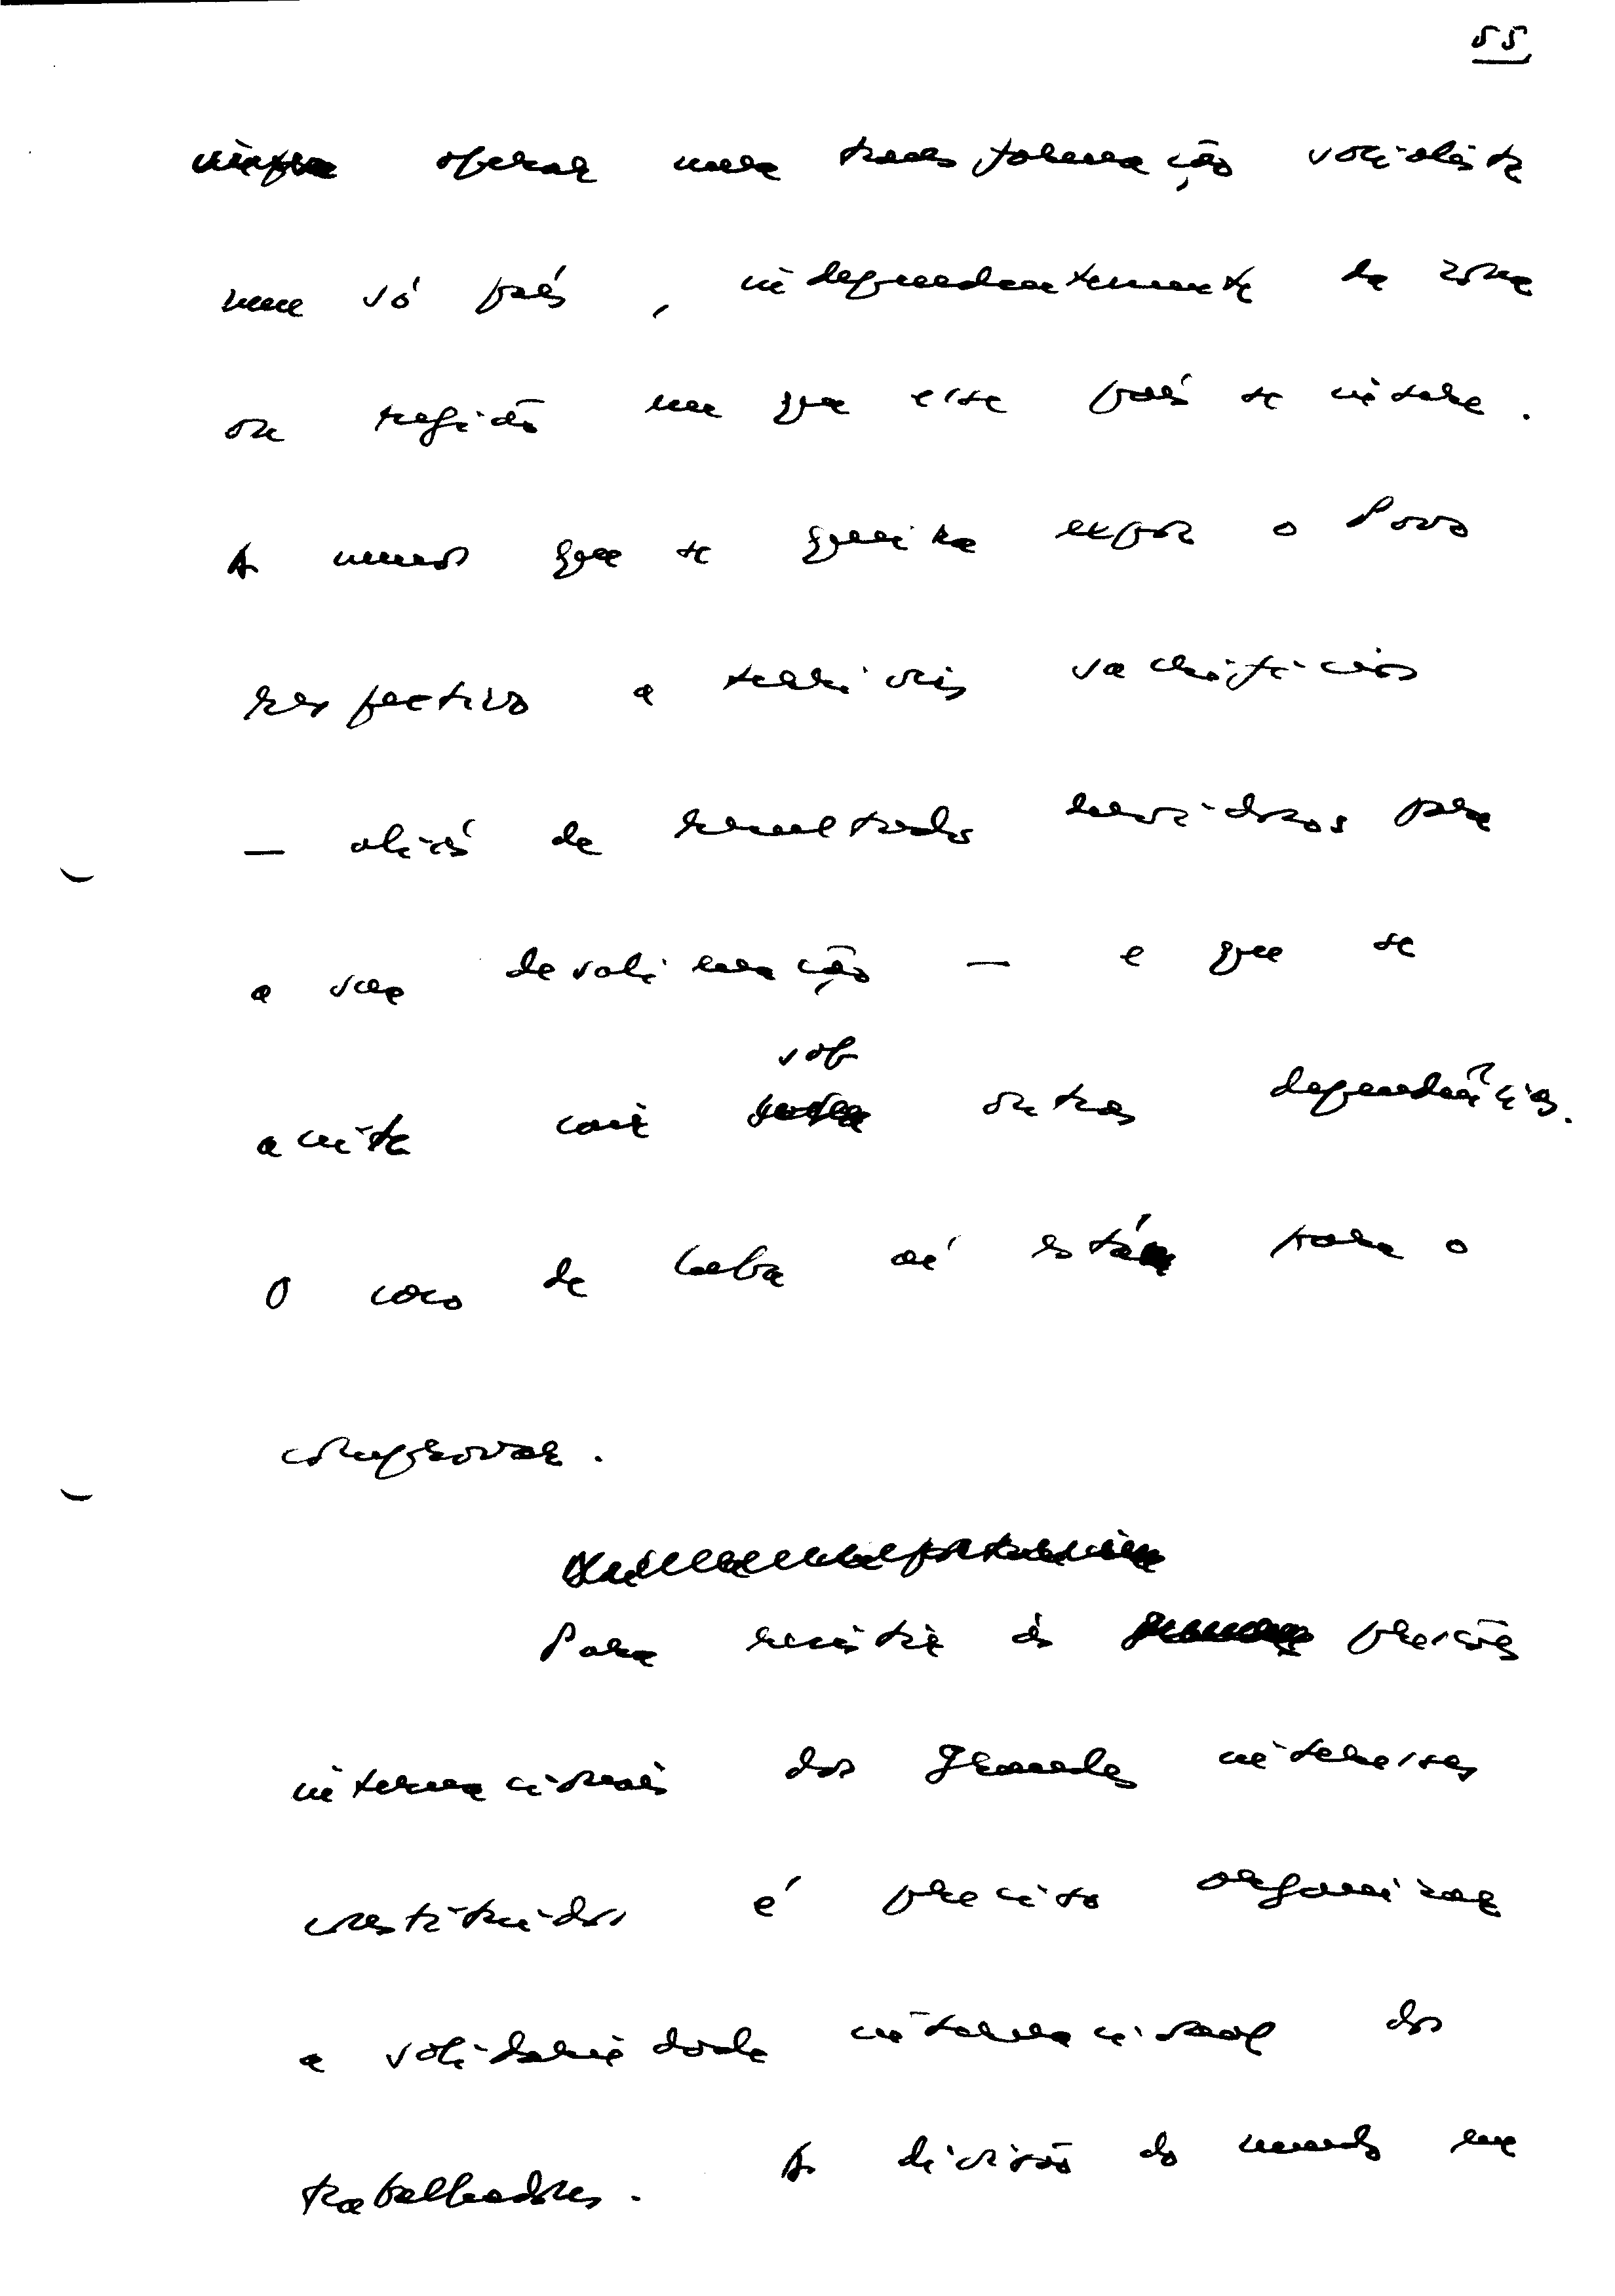 55
operar uma transformação socialista
num só país, independentemente da zona
ou região em que esse país se insere.
A menos que se queira expor o Povo
respectivo a terríveis sacrifícios
— aliás de resultados duvidosos para
a sua desalienação — e que se
sob
aceite cair outras dependências.
O caso de Cuba aí está para o
comprovar.
Para resistir às pressões
internacionais dos grandes interesses
constituídos é preciso organizar
a solidariedade internacional dos
trabalhadores. A divisão do mundo em